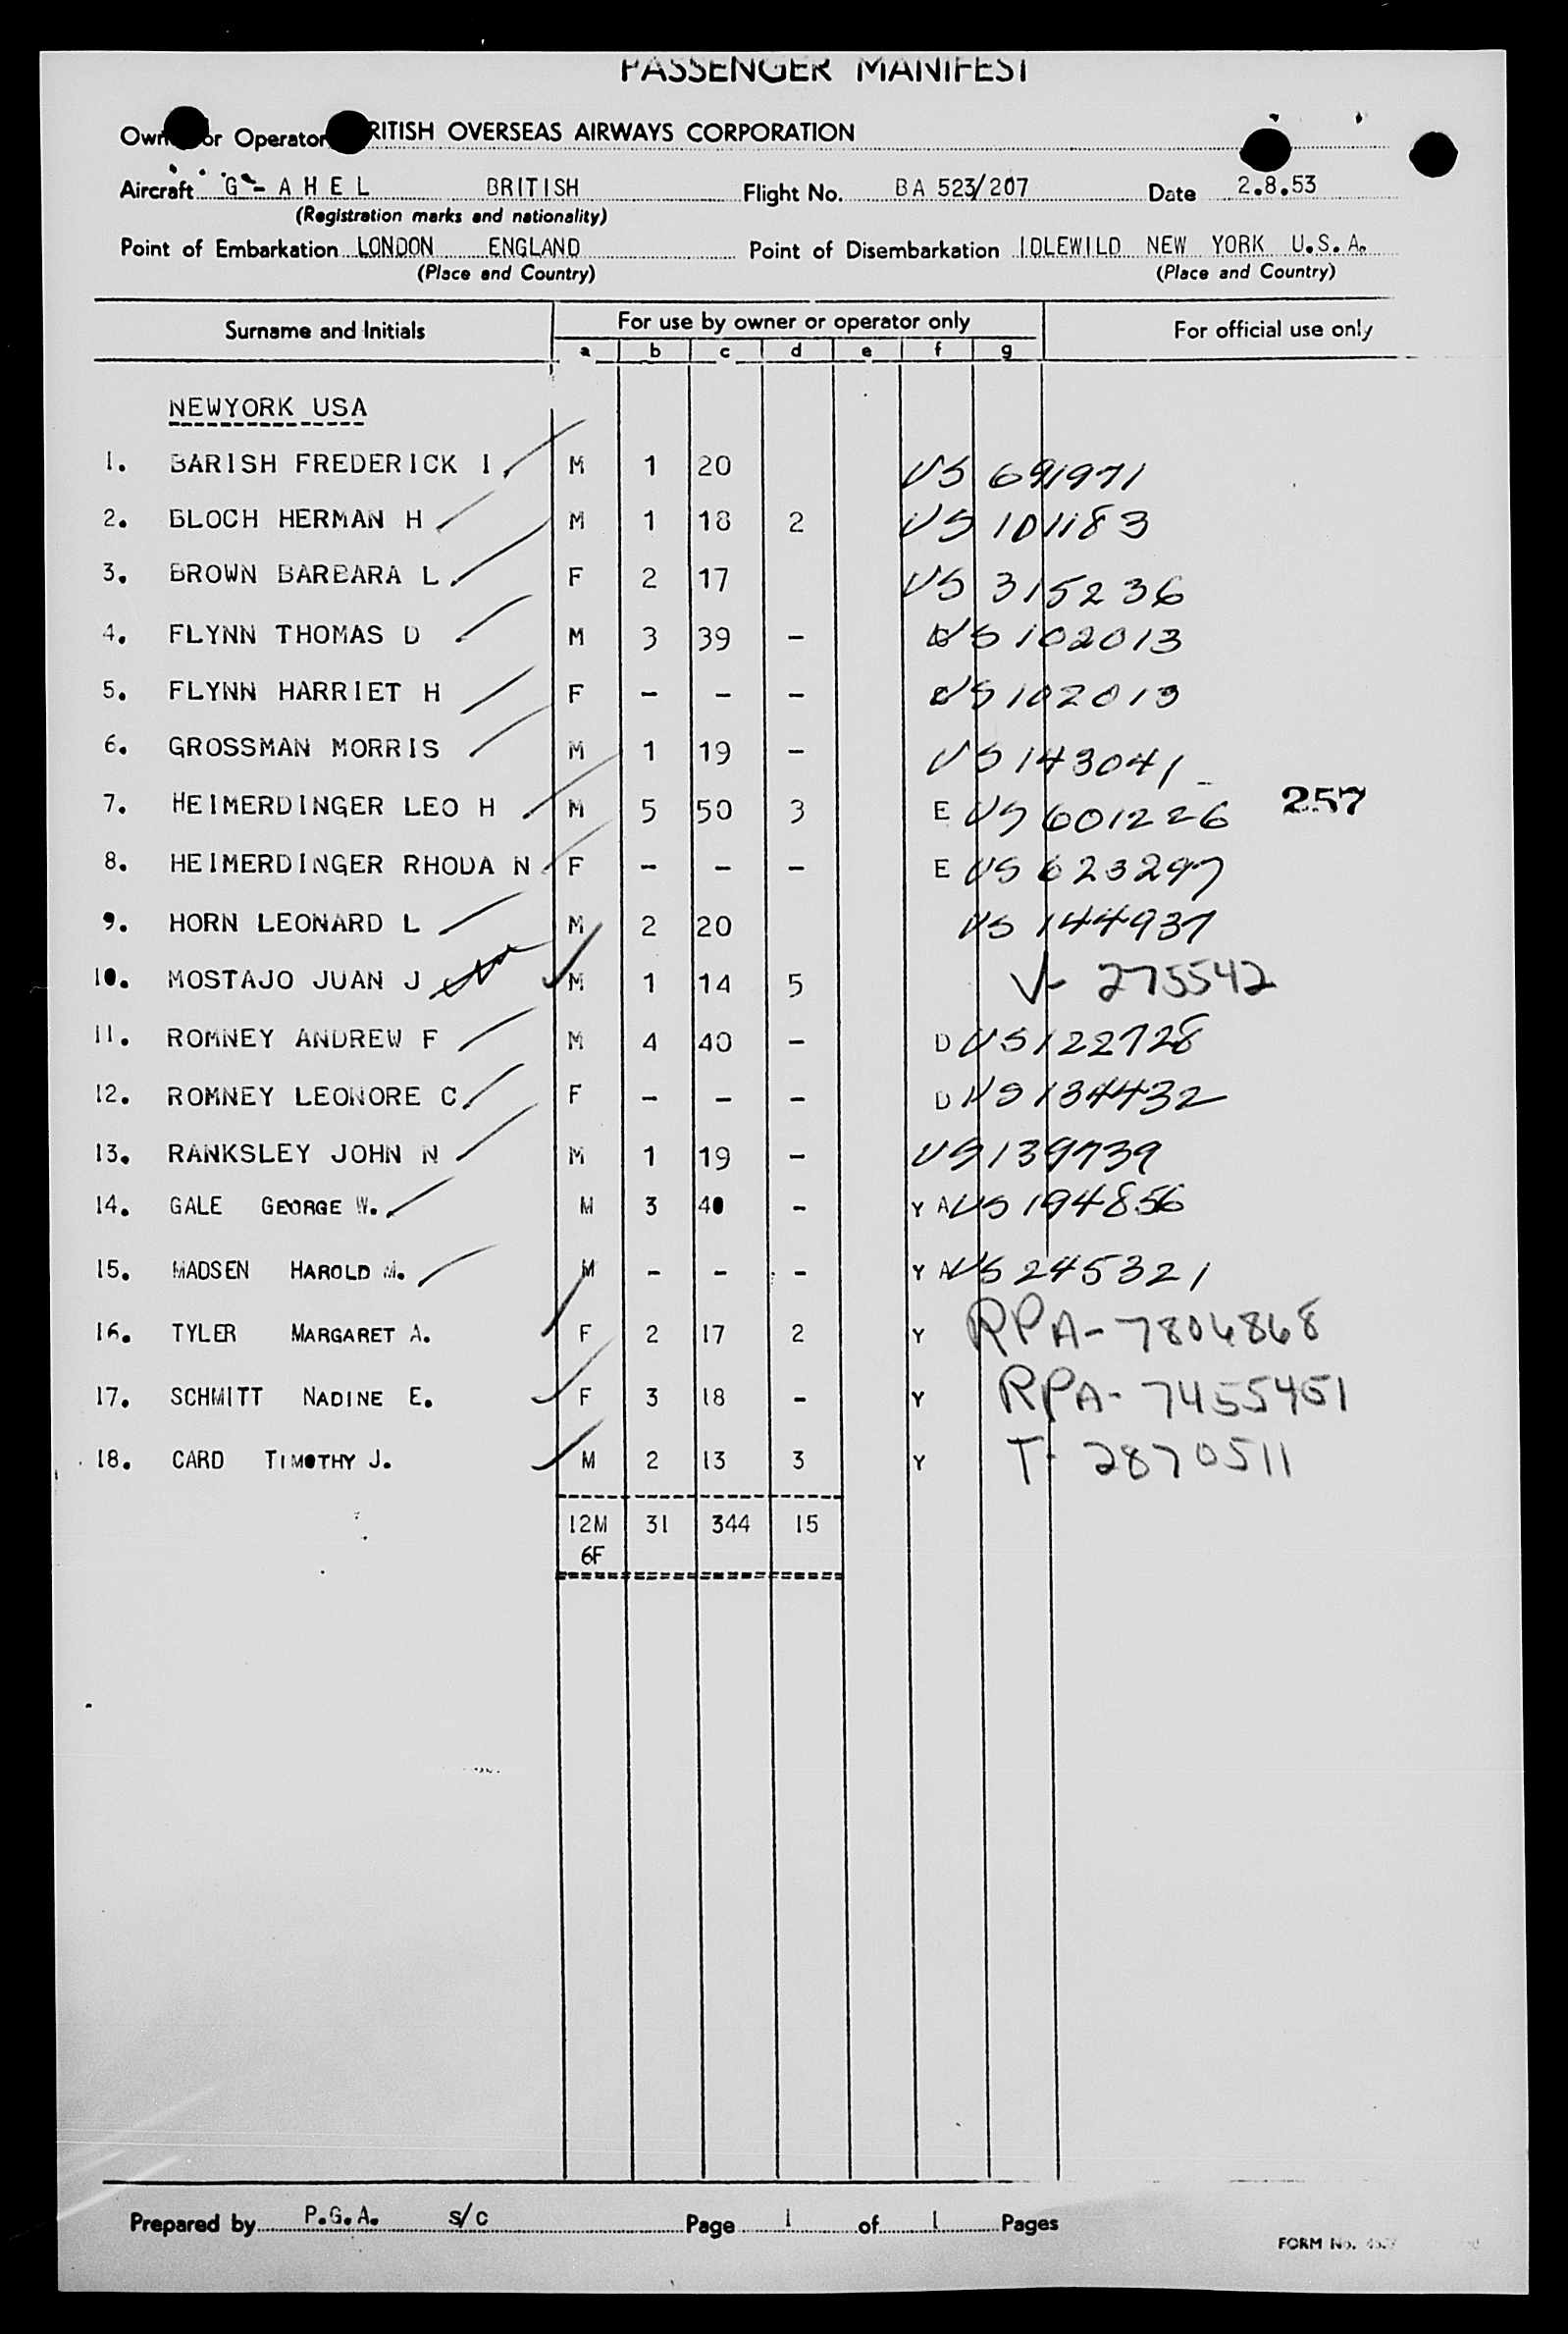 PASSENGER MANIFEST
Owner or Operator BRITISH OVERSEAS AIRWAYS CORPORATION
Aircraft G - A H E L BRITISH Flight No. BA 523/207 Date 2.8.53
(Registration marks and nationality)
Point of Embarkation LONDON ENGLAND Point of Disembarkation IDLEWILD NEW YORK U.S.A.
(Place and Country) (Place and Country)
Surname and Initials For use by owner or operator only For official use only
a b c d e f g
NEWYORK USA
1. BARISH FREDERICK I. M 1 20 US 691971
2. BLOCH HERMAN H M 1 18 2 US 101183
3. BROWN BARBARA L. F 2 17 US 315236
4. FLYNN THOMAS D M 3 39 - US 102013
5. FLYNN HARRIET H F - - - US 102013
6. GROSSMAN MORRIS M 1 19 - US 143041
7. HEIMERDINGER LEO H M 5 50 3 E US 601226 257
8. HEIMERDINGER RHODA N F - - - E US 623297
9. HORN LEONARD L M 2 20 US 144937
10. MOSTAJO JUAN J M 1 14 5 V- 275542
11. ROMNEY ANDREW F M 4 40 - D US 122728
12. ROMNEY LEONORE C. F - - - D US 134432
13. RANKSLEY JOHN N M 1 19 - US 139739
14. GALE GEORGE W. M 3 40 - Y A US 194856
15. MADSEN HAROLD M. M - - - Y A US 245321
16. TYLER MARGARET A. F 2 17 2 Y RPA-7804868
17. SCHMITT NADINE E. F 3 18 - Y RPA-7455451
18. CARD TIMOTHY J. M 2 13 3 Y T- 2870511
12M 31 344 15
6F
Prepared by P.G.A. s/c Page 1 of 1 Pages
FORM No.